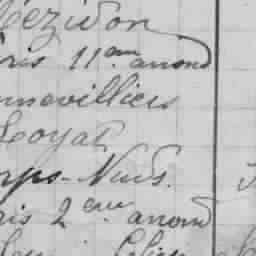 Mezidon
ris 11eme arrond
nnevilliers
Loyat
rps-Nuds.
ris 2eme arrond